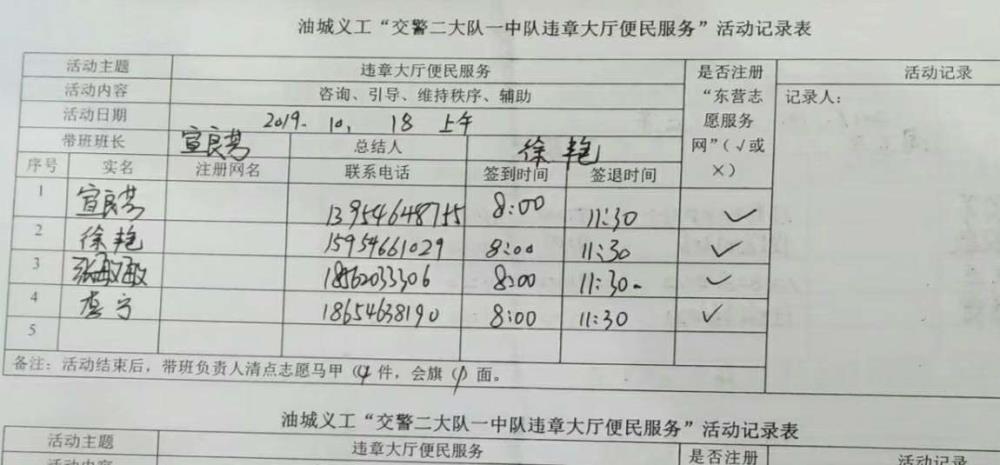 油城义工“交警二大队一中队违章大厅便民服务”活动记录表
活动主题 违章大厅便民服务 是否注册“东营志愿服务网”（√或×） 活动记录
活动内容 咨询、引导、维持秩序、辅助 记录人：
活动日期 2019. 10. 18 上午
带班班长 宣良芬 总结人 徐艳
序号 实名 注册网名 联系电话 签到时间 签退时间
1 宣良芬 13954648755 8:00 11:30 ✓
2 徐艳 15954661029 8:00 11:30 ✓
3 张敏敏 18562033306 8:00 11:30 ✓
4 宁 18654638190 8:00 11:30 ✓
5
备注：活动结束后，带班负责人清点志愿马甲（4件，会旗（1）面。
油城义工“交警二大队一中队违章大厅便民服务”活动记录表
活动主题 违章大厅便民服务 是否注册 活动记录
活动内容